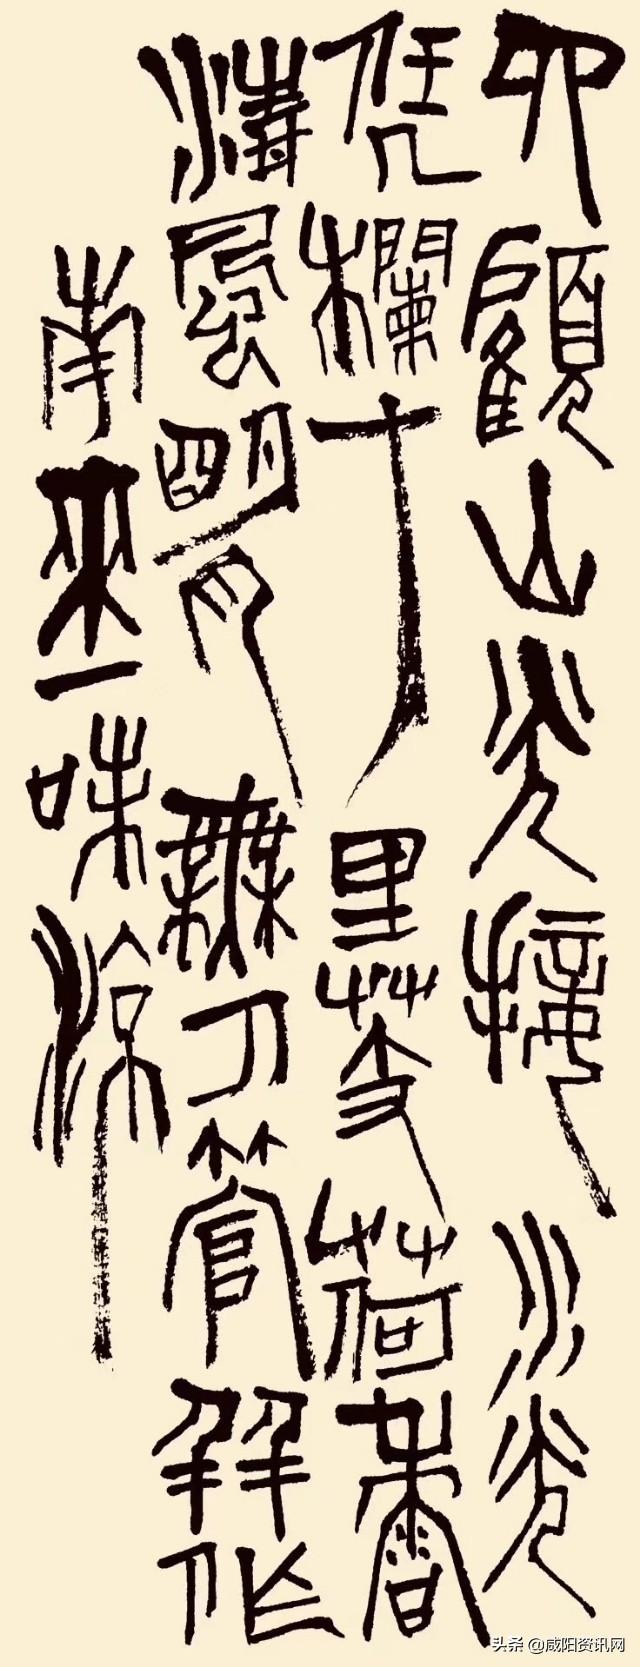 四顧山光接水光
凭欄十里芰荷香
清風明月無人管幷作
南來一味涼
头条 @咸阳资讯网